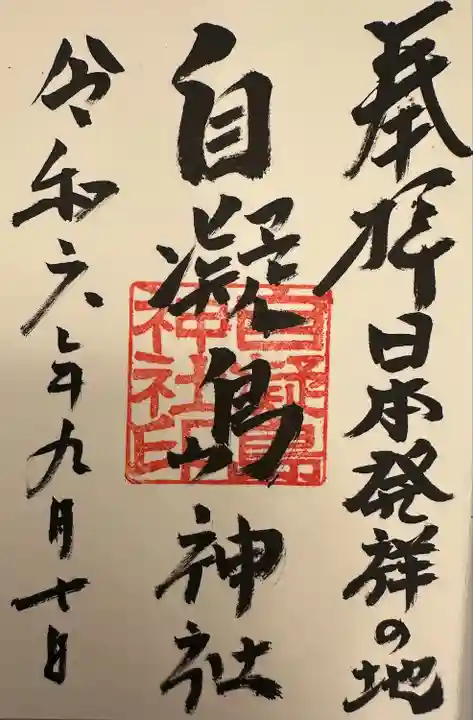 奉拝 日本発祥の地
自凝島神社
自凝島神社印
令和六年九月十日